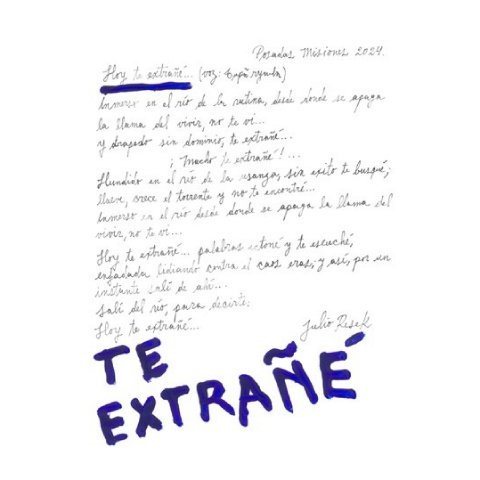 Posadas Misiones 2024.
Hoy te extrañé... (voz:
Inmerso en el río de la rutina, desde donde se apaga
la llama del vivir, no te ví...
y dragado sin dominio, te extrañé...
¡ Mucho te extrañé! ...
Hundido en el río de la usanza, sin exito te busqué;
llueve, crece el torrente y no te encontré...
Inmerso en el río desde donde se apaga la llama del
vivir, no te ví...
Hoy te extrañé... palabras y te escuché,
enfadada lidiando contra el caos eras; y así, por un
instante salí de ahí...
Salí del río, para decirte:
Hoy te extrañé...
Julio Resek
TE
EXTRAÑÉ